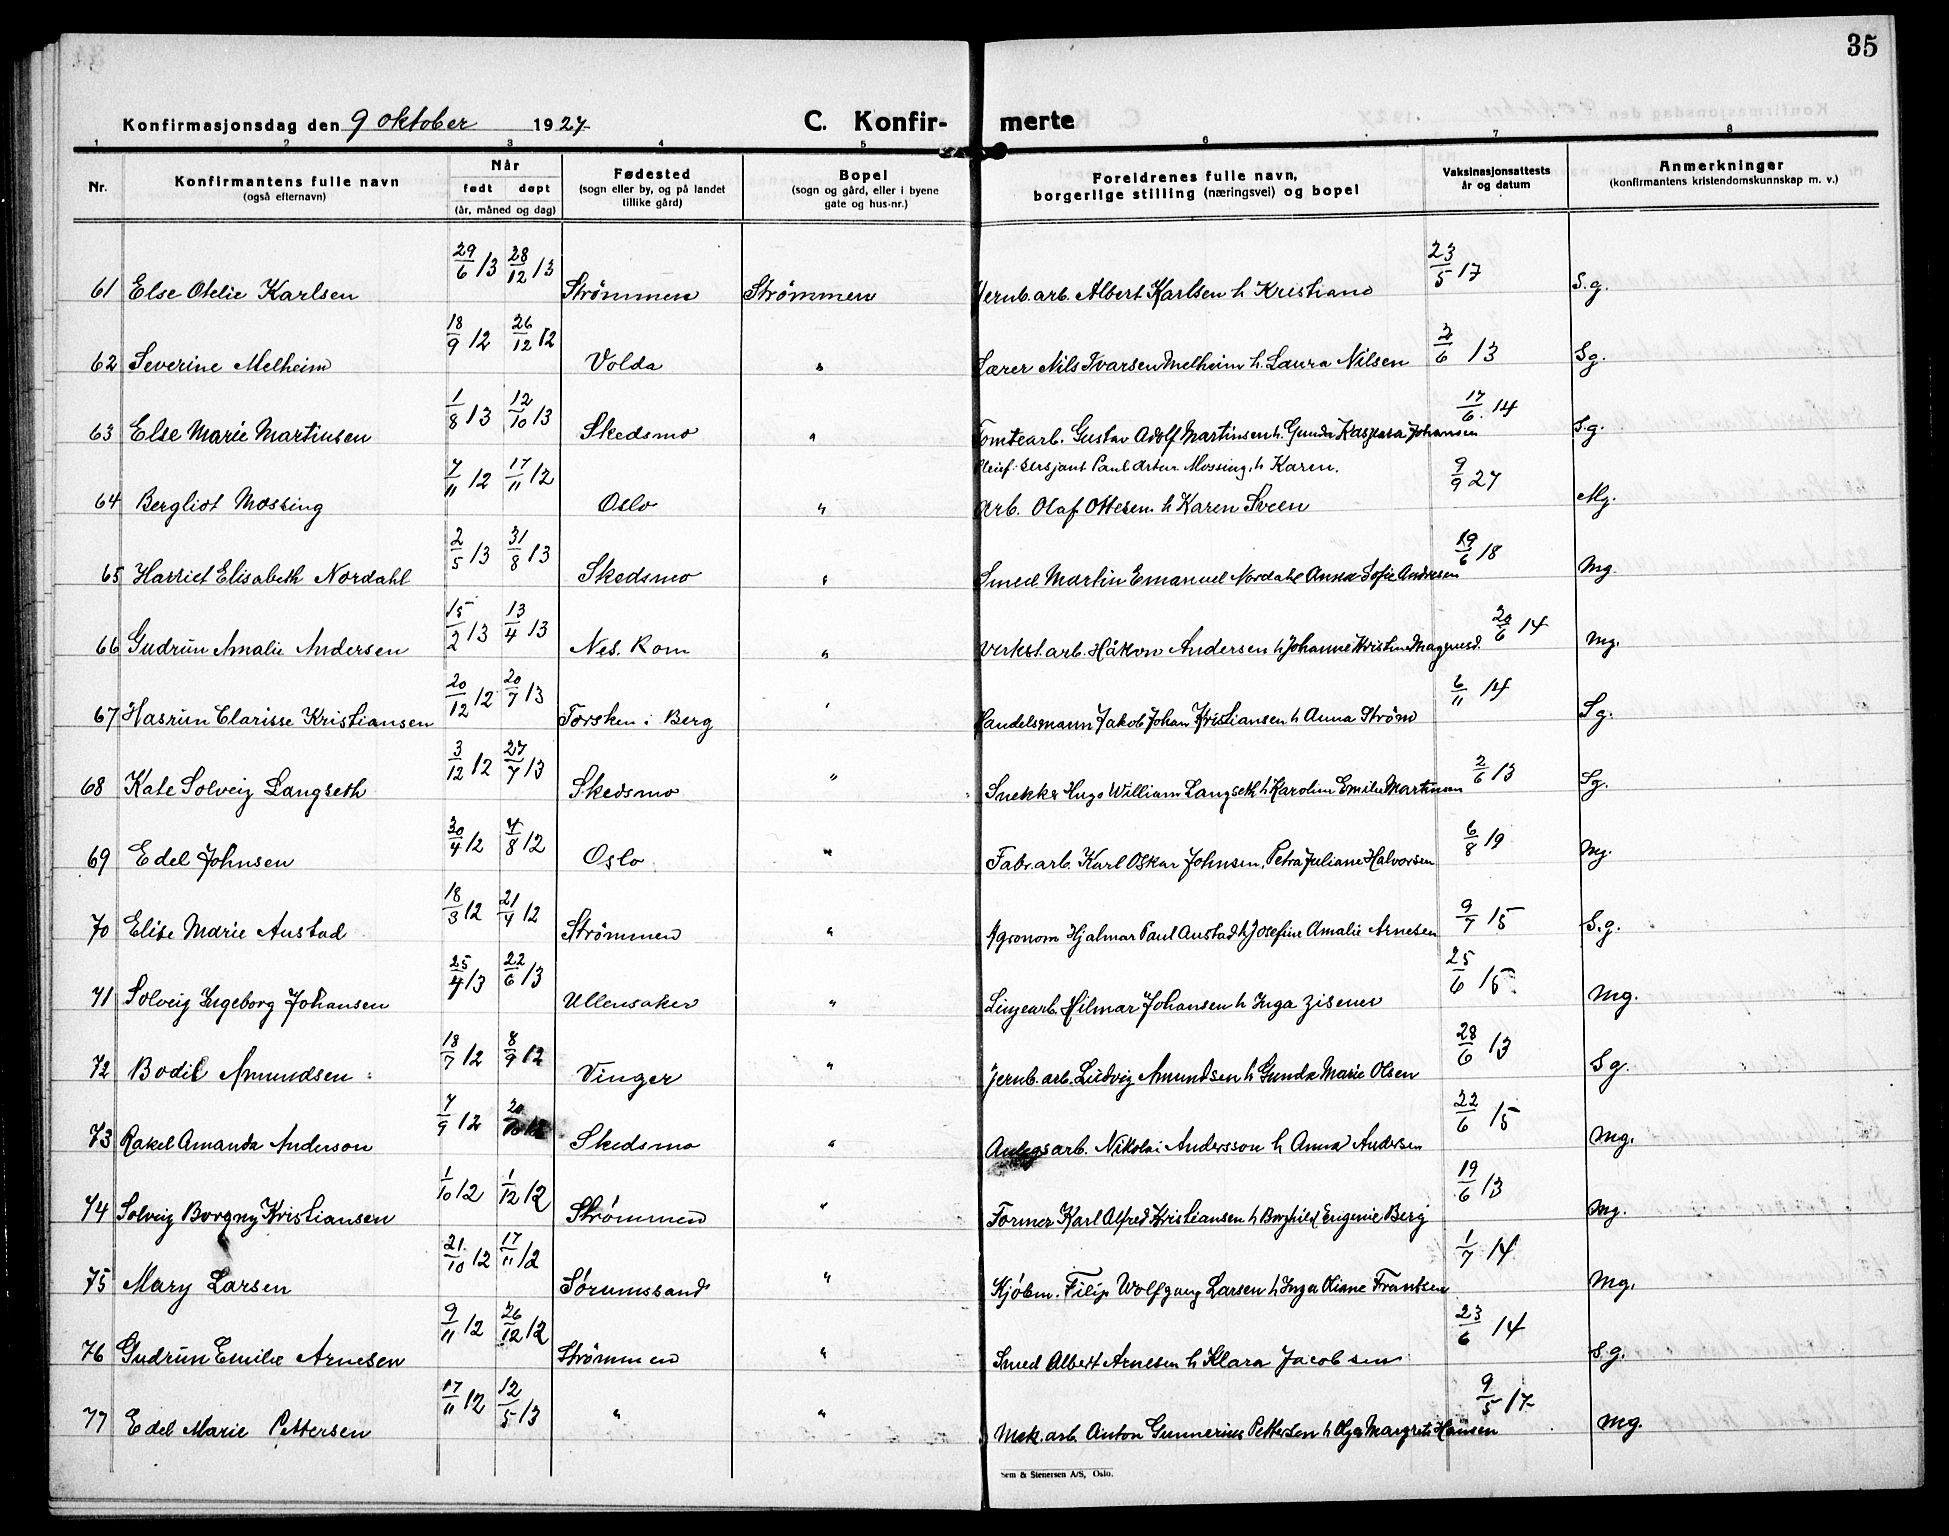 35
Konfirmasjonsdag den 9 oktober 1927. C. Konfir- merte
1 2 3 4 5 6 7 8
Nr. Konfirmantens fulle navn (også efternavn) Når født døpt (år, måned og dag) Fødested (sogn eller by, og på landet tillike gård) Bopel (sogn og gård, eller i byene gate og hus-nr.) Foreldrenes fulle navn, borgerlige stilling (næringsvei) og bopel Vaksinasjonsattests år og datum Anmerkninger (konfirmantens kristendomskunnskap m. v.)
61 Else Otelie Karlsen 29/6 13 28/12 13 Strømmen Strømmen Jernb.arb. Albert Karlsen h Kristiane 23/5 17 S.g.
62 Severine Melheim 18/9 12 26/12 12 Volda " Lærer Nils Ivarsen Melheim h. Laura Nilsen 2/6 13 Sg.
63 Else Marie Martinsen 1/8 13 12/10 13 Skedsmo " Tomtearb. Gustav Adolf Martinsen h. Gunda Kaspara Johansen 17/6 14 S.g.
Pleief. Sersjant Paul Artur Mossing, h Karen.
64 Bergliot Mossing 7/11 12 17/11 12 Oslo " Arb. Olaf Ottesen h Karen Sveen 9/9 27 Mg.
65 Harriet Elisabeth Nordahl 2/5 13 31/8 13 Skedsmo " Smed Martin Emanuel Nordahl Anna Sofie Andresen 19/6 18 Mg.
66 Gudrun Amalie Andersen 15/2 13 13/4 13 Nes. Rom " Verkst.arb. Håkon Andersen h Johanne Kristine Magnusd. 20/6 14 Mg.
67 Hasrun Clarisse Kristiansen 20/12 12 20/7 13 Torsken i Berg " Handelsmann Jakob Johan Kristiansen h Anna Strøm 6/11 14 Sg.
68 Kate Solveig Langseth 3/12 12 27/7 13 Skedsmo " Snekker Hugo William Langseth h Karoline Emilie Martinsen 2/6 13 Sg.
69 Edel Johnsen 30/4 12 4/8 12 Oslo " Fabr.arb. Karl Oskar Johnsen, Petra Juliane Halvorsen 6/8 19 Mg.
70 Elise Marie Austad 18/3 12 21/4 12 Strømmen " Agronom Hjalmar Paul Austad h Josefine Amalie Arnesen 9/7 15 S.g.
71 Solveig Ingeborg Johansen 25/4 13 22/6 13 Ullensaker " Linjearb. Hilmar Johansen h Inga Zisener 25/6 15 Mg.
72 Bodil Amundsen 18/7 12 8/9 12 Vinger " Jernb.arb. Ludvig Amundsen h Gunda Marie Olsen 28/6 13 Sg.
73 Rakel Amanda Anderson 7/9 12 20/10 12 Skedsmo " Anlegsarb. Nikolai Andersson h Anna Andersen 22/6 15 Mg.
74 Solveig Borgny Kristiansen 1/10 12 1/12 12 Strømmen " Former Karl Alfred Kristiansen h Borghild Eugenie Berg 19/6 13 Mg.
75 Mary Larsen 21/10 12 17/11 12 Sørumssand " Kjøbm. Filip Wolfgang Larsen h Inga Oliane Frantsen 1/7 14 Mg.
76 Gudrun Emilie Arnesen 9/11 12 26/12 12 Strømmen " Smed Albert Arnesen h Klara Jacobsen 23/6 14 S.g.
77 Edel Marie Pettersen 17/11 12 12/5 13 " " Mek.arb. Anton Gunnerius Pettersen h Olga Margrete Hansen 9/5 17 Mg.
Sem & Stenersen A/S, Oslo.